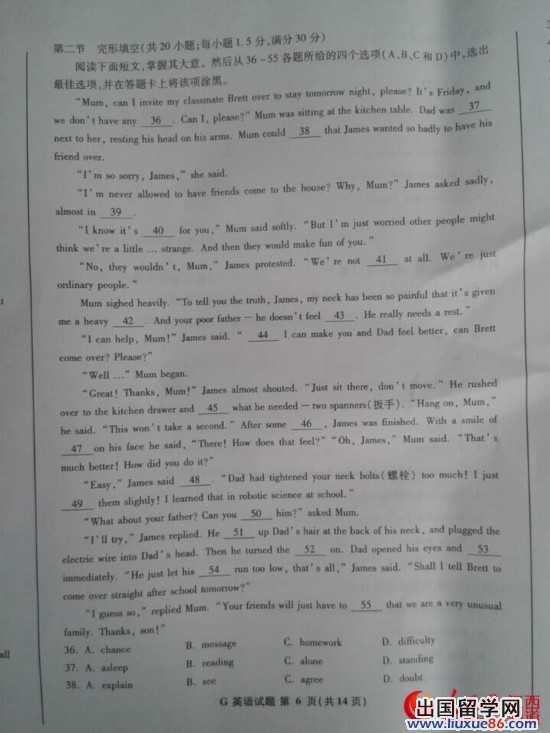 第二节 完形填空(共20小题;每小题1.5分,满分30分)
阅读下面短文,掌握其大意。然后从36~55各题所给的四个选项(A、B、C和D)中,选出
最佳选项,并在答题卡上将该项涂黑。
"Mum, can I invite my classmate Brett over to stay tomorrow night, please? It's Friday, and
we don't have any 36 . Can I, please?" Mum was sitting at the kitchen table. Dad was 37
next to her, resting his head on his arms. Mum could 38 that James wanted so badly to have his
friend over.
"I'm so sorry, James," she said.
"I'm never allowed to have friends come to the house? Why, Mum?" James asked sadly,
almost in 39 .
"I know it's 40 for you," Mum said softly. "But I'm just worried other people might
think we're a little ... strange. And then they would make fun of you."
"No, they wouldn't, Mum," James protested. "We're not 41 at all. We're just
ordinary people."
Mum sighed heavily. "To tell you the truth, James, my neck has been so painful that it's given
me a heavy 42 . And your poor father — he doesn't feel 43 . He really needs a rest."
"I can help, Mum!" James said. " 44 I can make you and Dad feel better, can Brett
come over? Please?"
"Well ..." Mum began.
"Great! Thanks, Mum!" James almost shouted. "Just sit there, don't move." He rushed
over to the kitchen drawer and 45 what he needed — two spanners(扳手). "Hang on, Mum,"
he said. "This won't take a second." After some 46 , James was finished. With a smile of
47 on his face he said, "There! How does that feel?" "Oh, James," Mum said. "That's
much better! How did you do it?"
"Easy," James said 48 . "Dad had tightened your neck bolts(螺栓) too much! I just
49 them slightly! I learned that in robotic science at school."
"What about your father? Can you 50 him?" asked Mum.
"I'll try," James replied. He 51 up Dad's hair at the back of his neck, and plugged the
electric wire into Dad's head. Then he turned the 52 on. Dad opened his eyes and 53
immediately. "He just let his 54 run too low, that's all," James said. "Shall I tell Brett to
come over straight after school tomorrow?"
"I guess so," replied Mum. "Your friends will just have to 55 that we are a very unusual
family. Thanks, son!"
36. A. chance B. message C. homework D. difficulty
37. A. asleep B. reading C. alone D. standing
38. A. explain B. see C. agree D. doubt
G 英语试题 第 6 页(共14页)
all
出国留学网
www.liuxue86.com